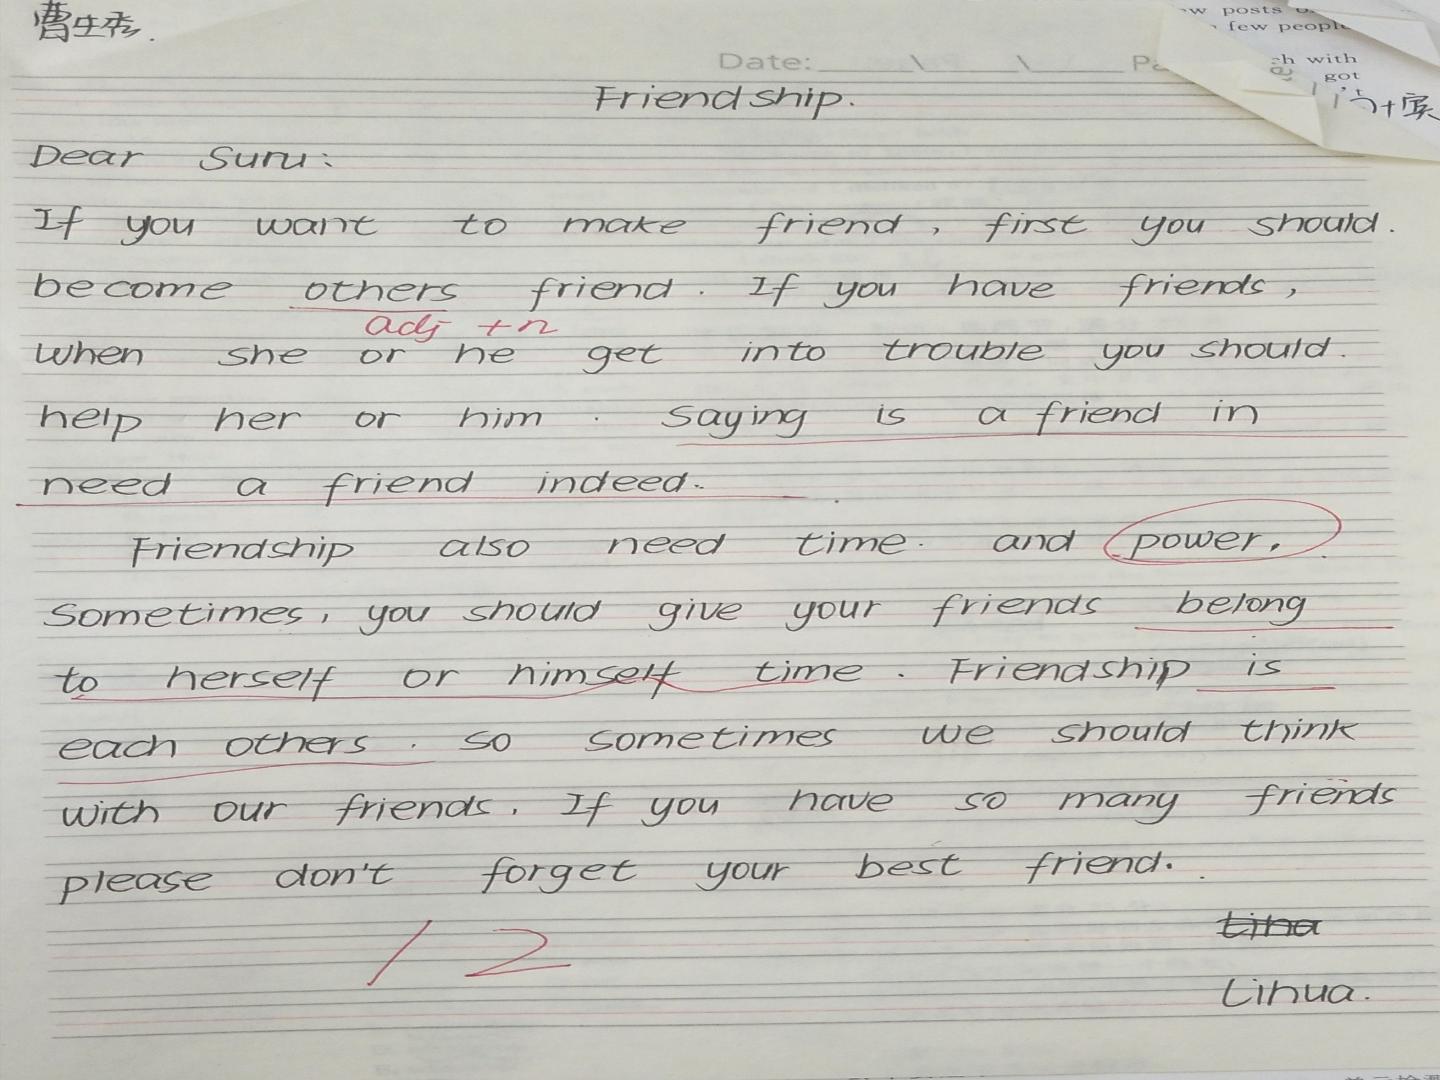 曹生秀.
w posts
few people
Date: \ \
ch with
got
Friendship.
Dear Suru:
If you want to make friend, first you should.
become others friend. If you have friends,
adj + n
when she or he get into trouble you should.
help her or him. Saying is a friend in
need a friend indeed.
Friendship also need time. and power.
Sometimes, you should give your friends belong
to herself or himself time. Friendship is
each others. so sometimes we should think
with our friends. If you have so many friends
please don't forget your best friend.
12
tina
Lihua.